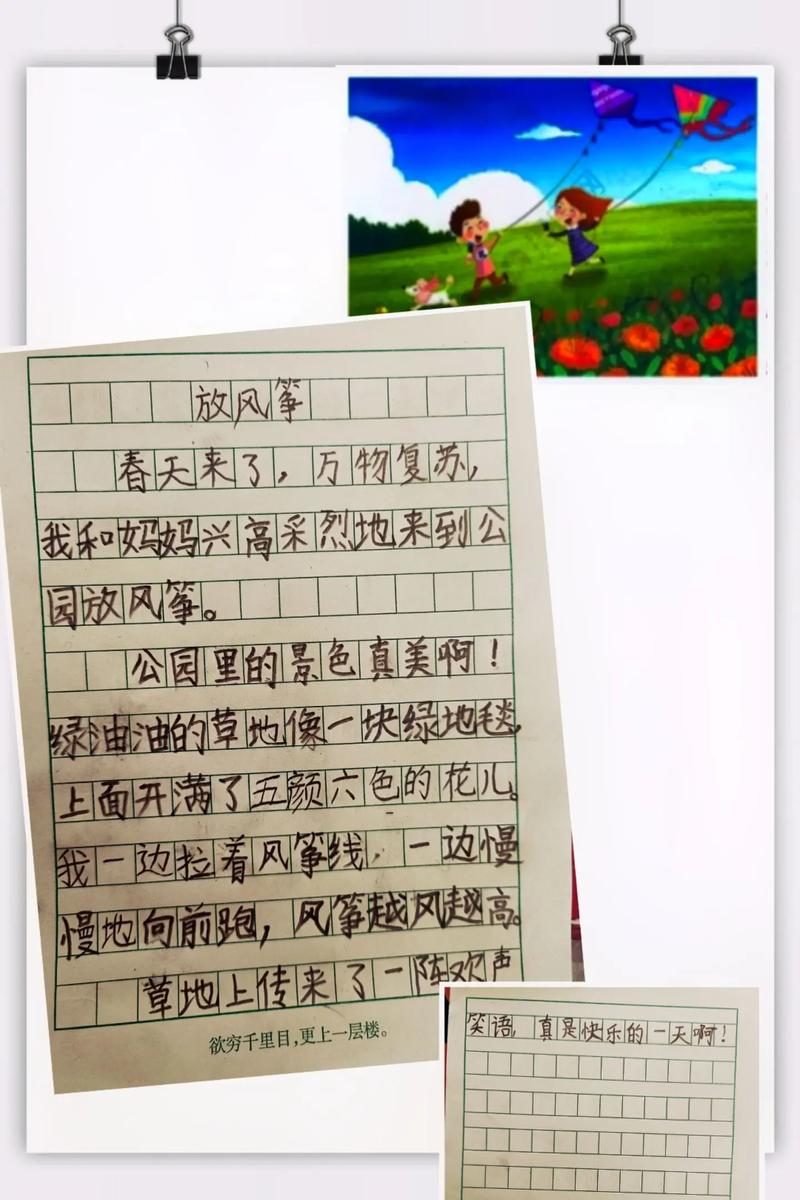 放风筝
春天来了，万物复苏，
我和妈妈兴高采烈地来到公
园放风筝。
公园里的景色真美啊！
绿油油的草地像一块绿地毯，
上面开满了五颜六色的花儿。
我一边拉着风筝线，一边慢
慢地向前跑，风筝越风越高。
草地上传来了一阵欢声
欲穷千里目，更上一层楼。
笑语，真是快乐的一天啊！